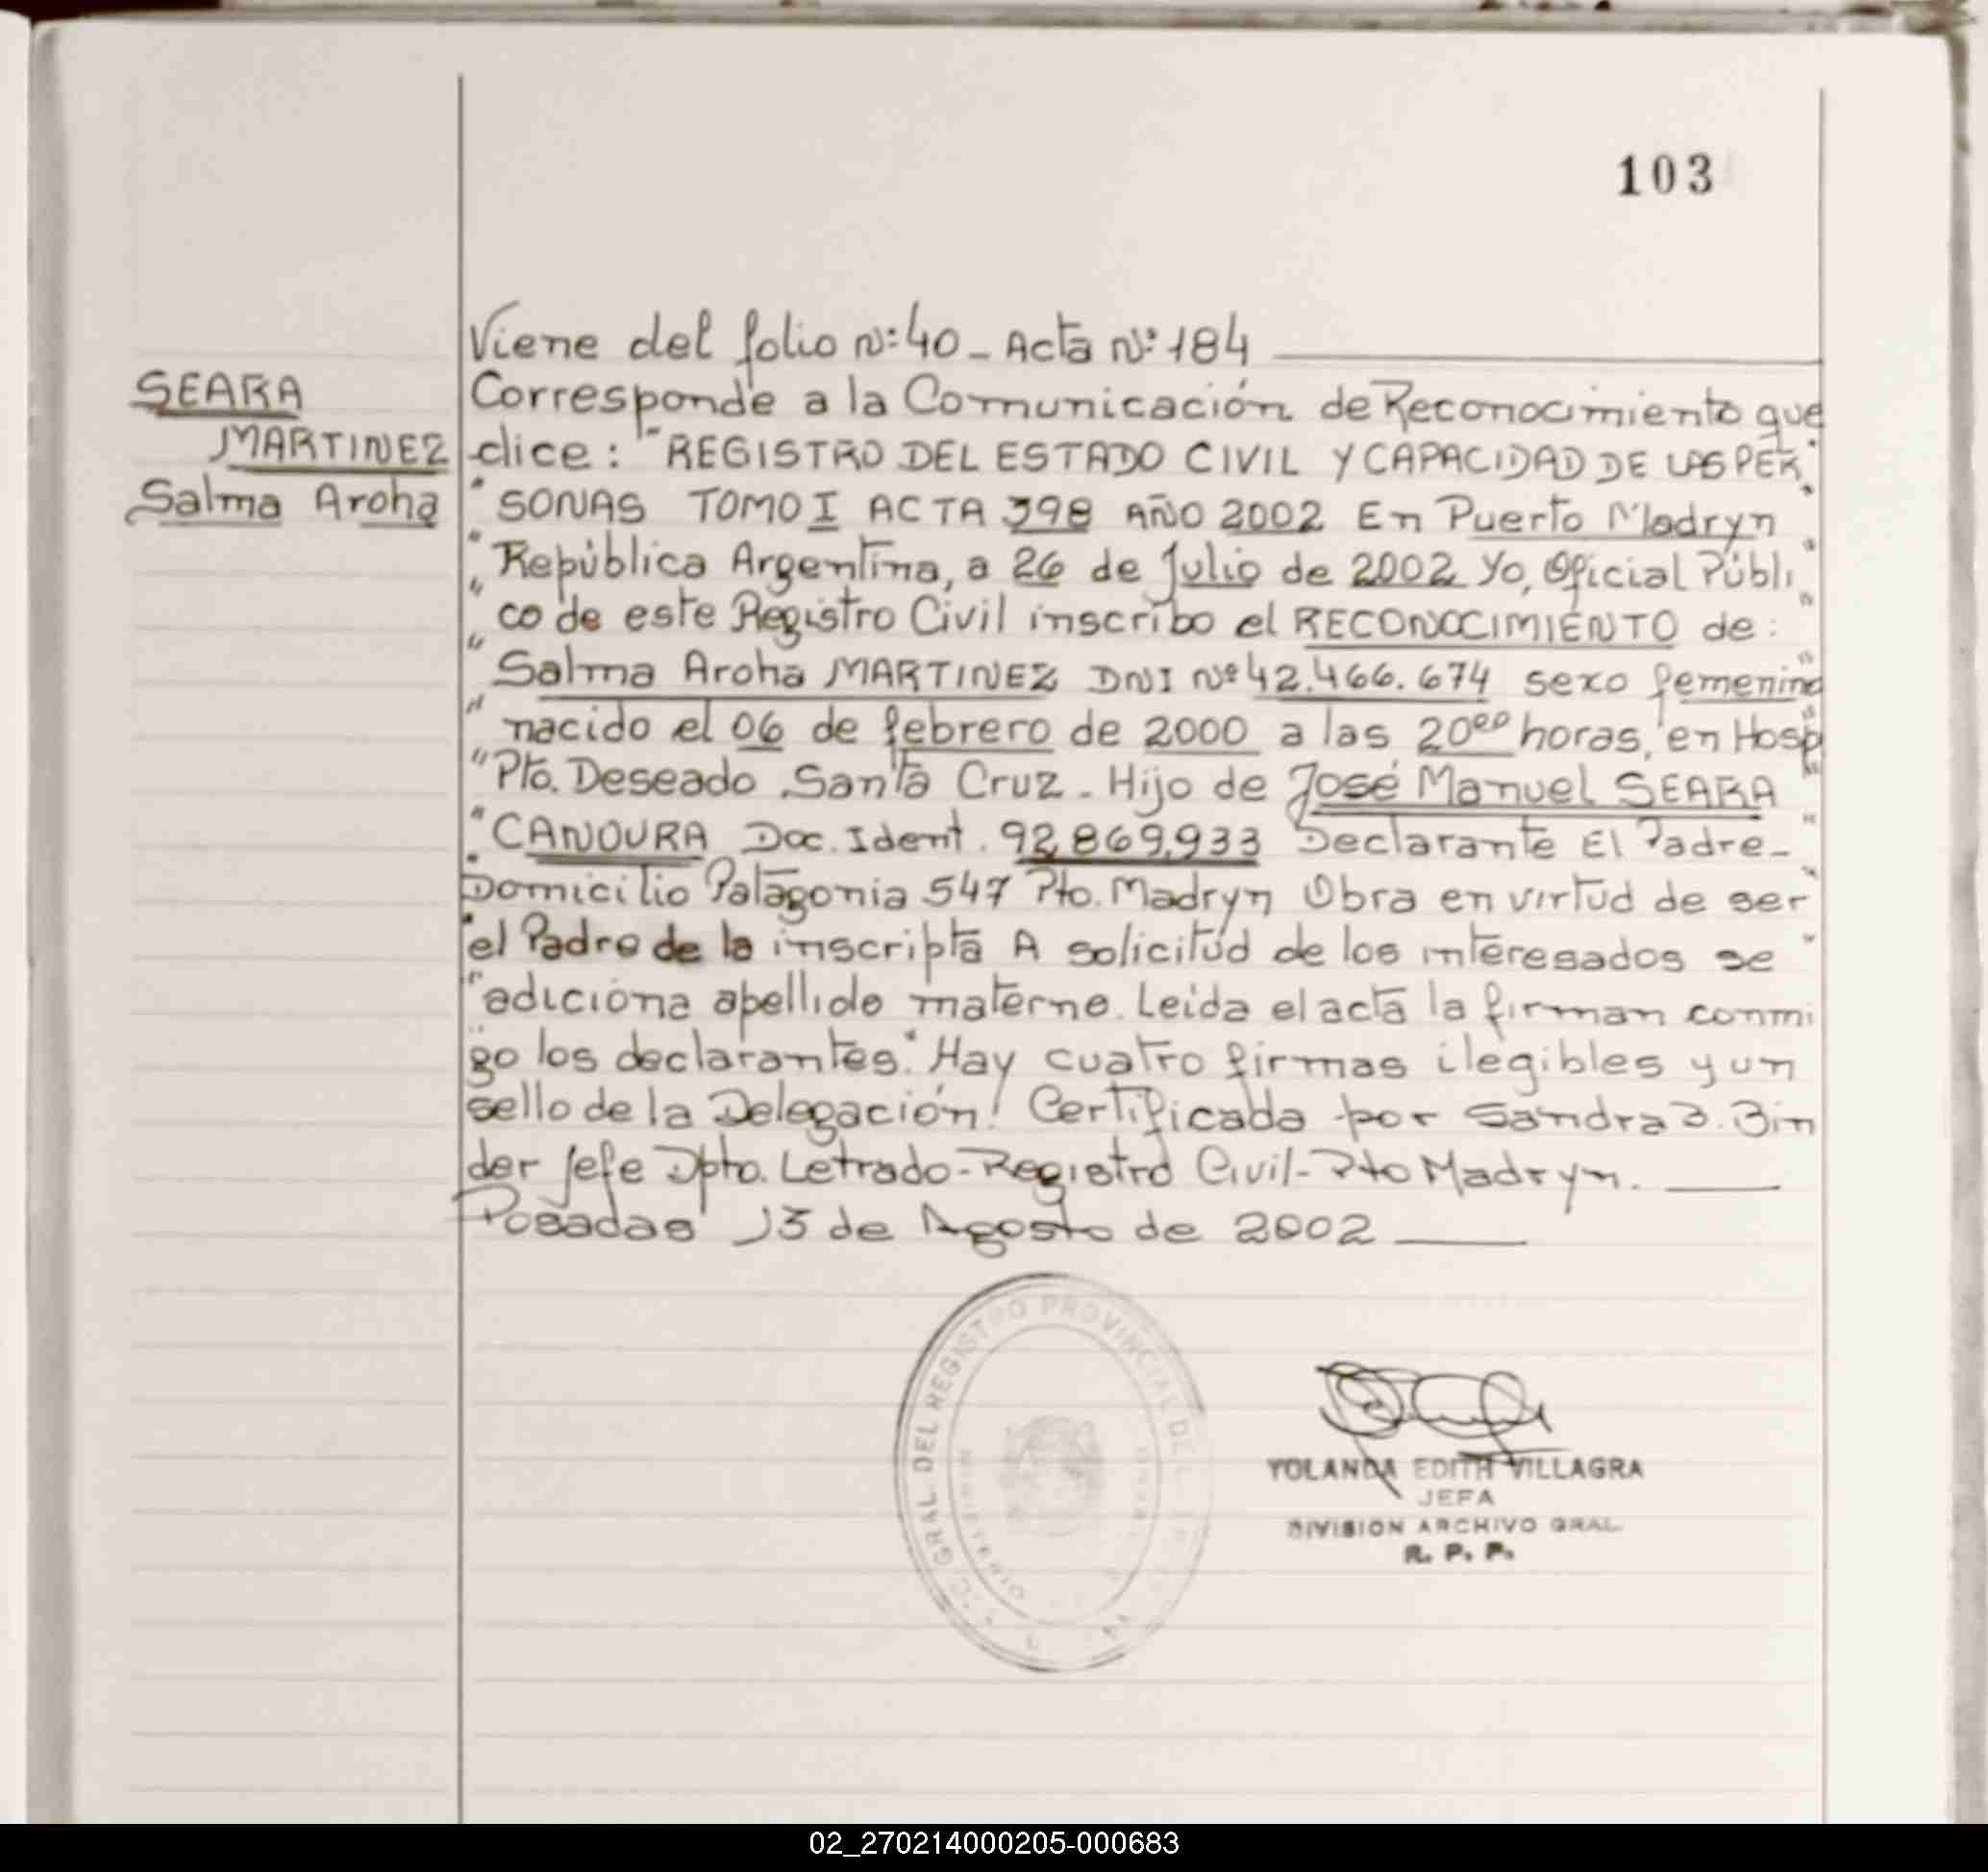 103
Viene del folio Nº: 40 - Acta Nº 184
SEARA
MARTINEZ
Salma Aroha
Corresponde a la Comunicación de Reconocimiento que
dice: "REGISTRO DEL ESTADO CIVIL Y CAPACIDAD DE LAS PER
" SONAS TOMO I ACTA 398 AÑO 2002 En Puerto Madryn
" República Argentina, a 26 de Julio de 2002 Yo, Oficial Públi
" co de este Registro Civil inscribo el RECONOCIMIENTO de:
" Salma Aroha MARTINEZ DNI Nº 42.466.674 sexo femenino
" nacido el 06 de febrero de 2000 a las 20⁰⁰ horas, en Hosp
" Pto. Deseado Santa Cruz - Hijo de José Manuel SEARA
" CANOURA Doc. Ident. 92.869.933 Declarante El Padre -
Domicilio Patagonia 547 Pto. Madryn Obra en virtud de ser
" el Padre de la inscripta A solicitud de los interesados se
" adiciona apellido materno. Leida el acta la firman conmi
go los declarantes." Hay cuatro firmas ilegibles y un
sello de la Delegación! Certificada por Sandra B. Bin
der Jefe Dpto. Letrado - Registro Civil - Pto Madryn.
Posadas 13 de Agosto de 2002
GRAL. DEL REGISTRO PROVINCIAL DE
MINISTERIO
YOLANDA EDITH VILLAGRA
JEFA
DIVISION ARCHIVO GRAL.
R. P. P.
02_270214000205-000683